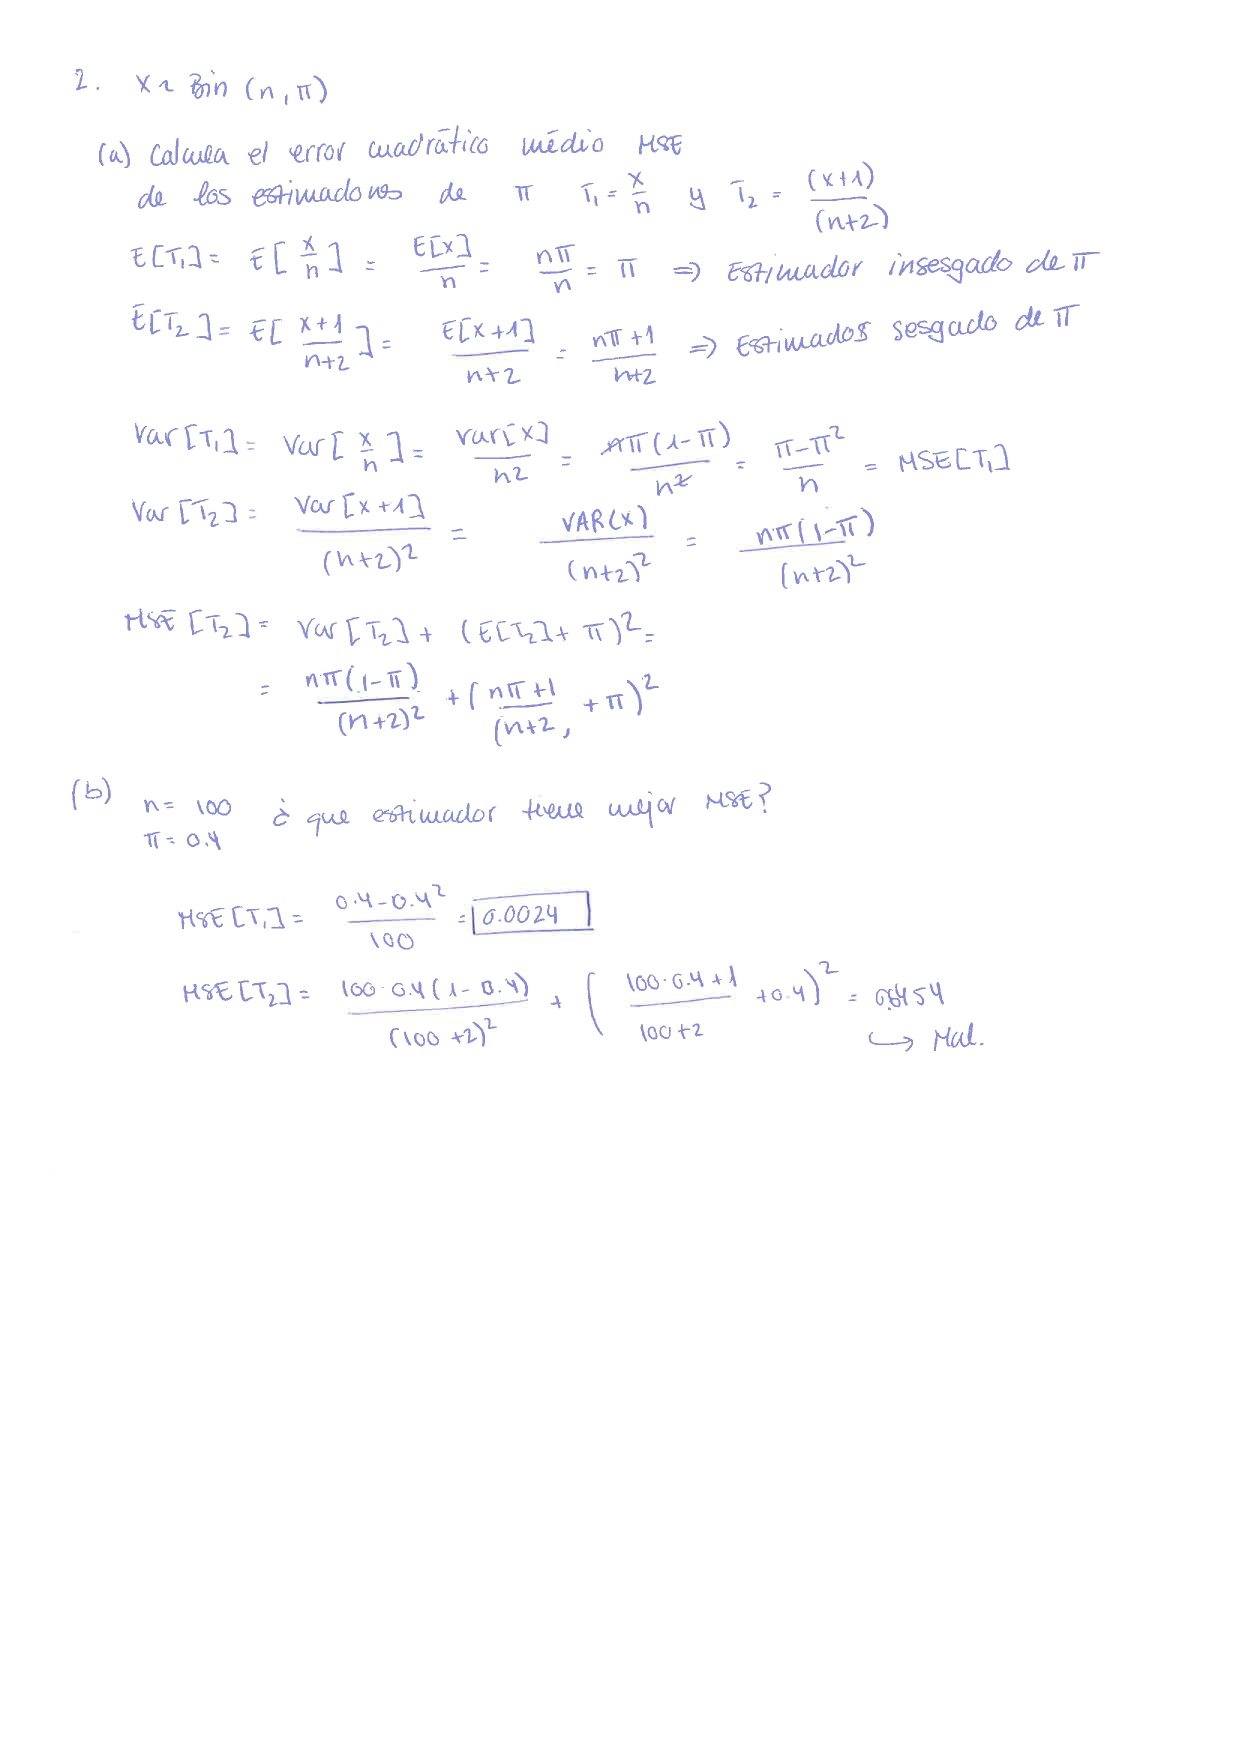 2. X ~ Bin (n, π)
(a) Calcula el error cuadrático médio MSE
de los estimadores de π T₁ = x/n y T₂ = (x+1)/(n+2)
E[T₁] = E[x/n] = E[x]/n = nπ/n = π ⇒ Estimador insesgado de π
E[T₂] = E[x+1/n+2] = E[x+1]/n+2 = nπ+1/n+2 ⇒ Estimados sesgado de π
Var[T₁] = Var[x/n] = Var[x]/n² = nπ(1-π)/n² = π-π²/n = MSE[T₁]
Var[T₂] = Var[x+1]/(n+2)² = VAR(x)/(n+2)² = nπ(1-π)/(n+2)²
MSE[T₂] = Var[T₂] + (E[T₂] + π)² =
= nπ(1-π)/(n+2)² + (nπ+1/(n+2, + π)²
(b) n = 100 ¿ que estimador tiene mejor MSE?
π = 0.4
MSE[T₁] = 0.4-0.4²/100 = 0.0024
MSE[T₂] = 100·0.4(1-0.4)/(100+2)² + (100·0.4+1/100+2 +0.4)² =
↪ Mal.